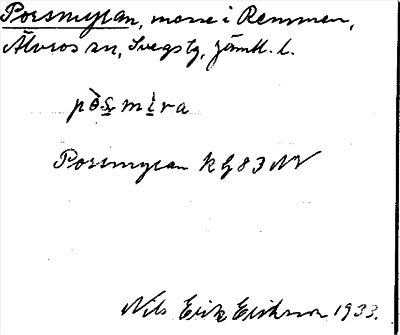 Porsmyran, mosse i Remmen,
Älvros sn, Svegs tg, Jämtl. l.
pòs̲ mi̲ra
Porsmyran kg 83 NV
Nils Erik Eriksson 1933.